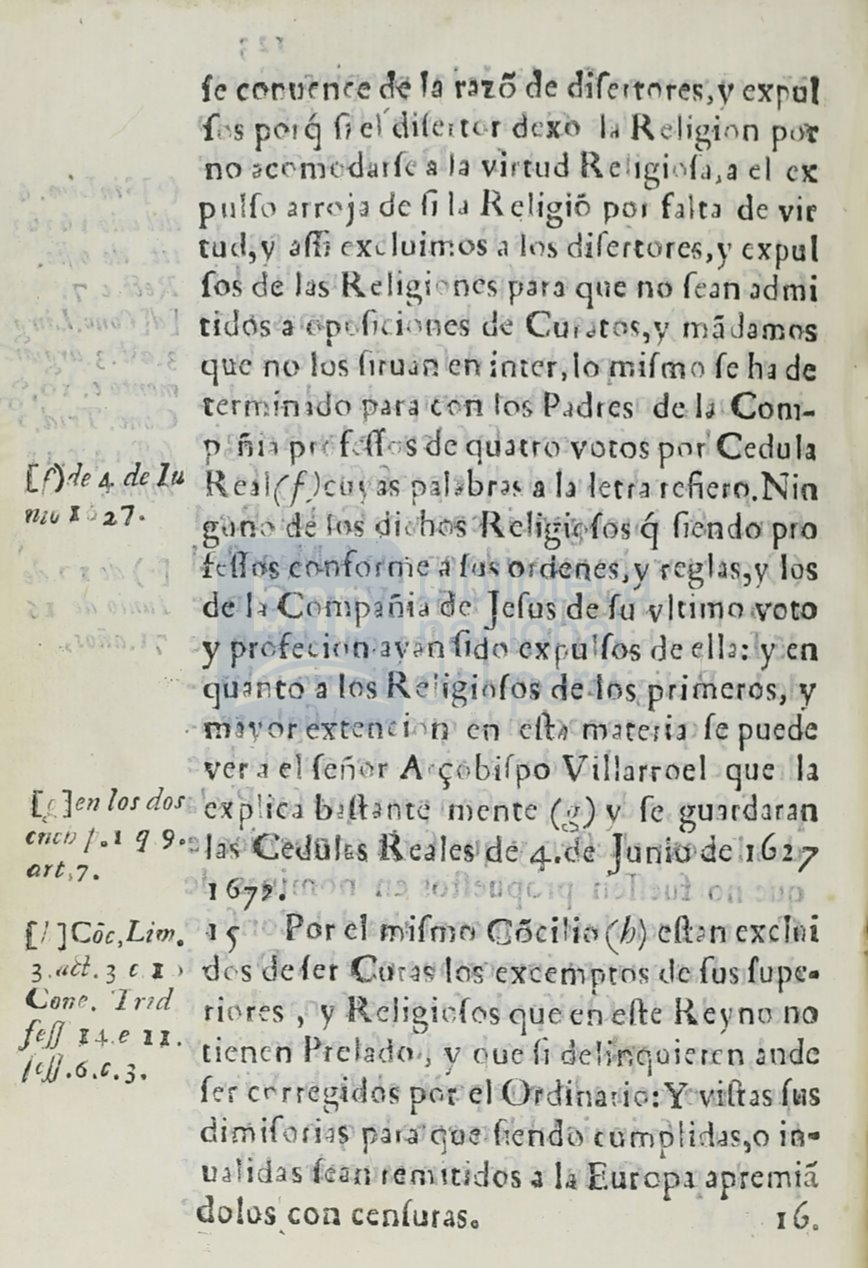 ſe conuence de la razõ de diſertores, y expul
ſos porq́ ſi el diſertor dexo la Religion por
no acomodarſe a la virtud Religioſa, a el ex
pulſo arroja de ſi la Religiõ por falta de vir
tud, y aſſi excluimos a los diſertores, y expul
ſos de las Religiones para que no ſean admi
tidos a opoſiciones de Curatos, y mãdamos
que no los ſiruan en inter, lo miſmo ſe ha de
terminado para con los Padres de la Com-
pañia profeſſos de quatro votos por Cedula
Real (f) cuyas palabras a la letra refiero. Nin
guno de los dichos Religioſos q́ ſiendo pro
feſſos conforme a ſus ordenes, y reglas, y los
de la Compañia de Jeſus de ſu vltimo voto
y profecion ayan ſido expulſos de ella: y en
quanto a los Religioſos de los primeros, y
mayor extencion en eſta materia ſe puede
ver a el ſeñor Arçobiſpo Villarroel que la
explica baſtante mente (g) y ſe guardaran
las Cedulas Reales de 4. de Junio de 1627
15 Por el miſmo Cõcilio (h) eſtan exclui
dos de ſer Curas los excemptos de ſus ſupe-
riores, y Religioſos que en eſte Reyno no
tienen Prelado, y que ſi delinquieren ande
ſer corregidos por el Ordinario: Y viſtas ſus
dimiſorias para que ſiendo cumplidas, o in-
ualidas ſean remitidos a la Europa apremiã
dolos con cenſuras.
16.
[f) de 4. de Iu
nio 1627.
[g] en los dos
p. 1 q 9.
art. 7.
[h] Cõc, Lim.
3. act. 3 c 1
Conc. Trid
ſeſſ 14. e 11.
ſeſſ. 6. c. 3.